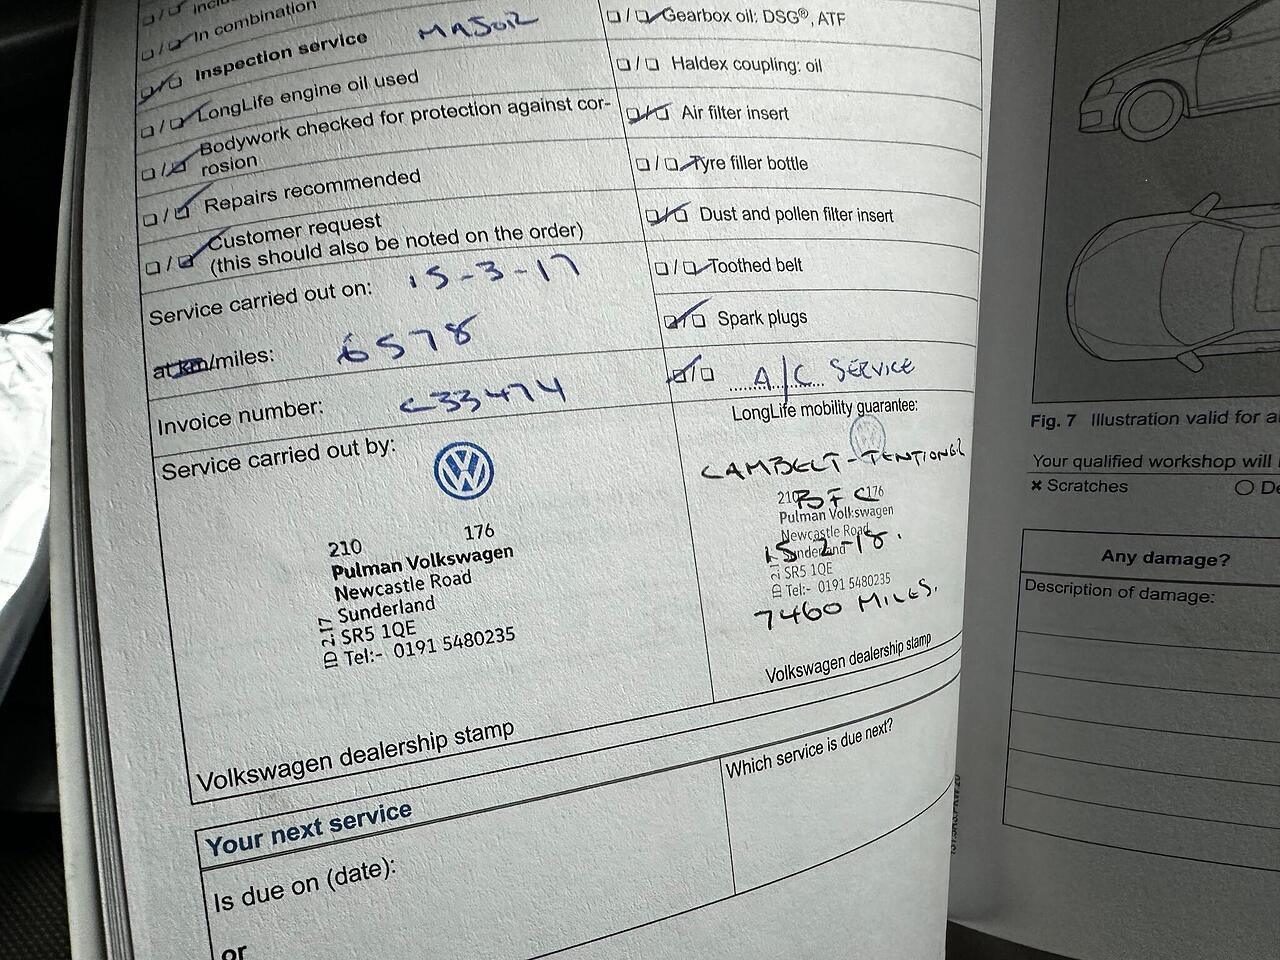 In combination
Inspection service MAJOR
LongLife engine oil used
Bodywork checked for protection against cor-
rosion
Repairs recommended
Customer request
(this should also be noted on the order)
Service carried out on: 15-3-17
at km/miles: 6578
Invoice number: C33474
Service carried out by:
210 176
Pulman Volkswagen
Newcastle Road
Sunderland
SR5 1QE
Tel:- 0191 5480235
Volkswagen dealership stamp
Gearbox oil: DSG®, ATF
Haldex coupling: oil
Air filter insert
Tyre filler bottle
Dust and pollen filter insert
Toothed belt
Spark plugs
A/C SERVICE
LongLife mobility guarantee:
CAMBELT-TENTIONER
210 176
BFC
Pulman Volkswagen
Newcastle Road
Sunderland
15-2-18.
SR5 1QE
Tel:- 0191 5480235
7460 MILES.
Volkswagen dealership stamp
Your next service
Is due on (date):
or
Which service is due next?
Fig. 7 Illustration valid for
Your qualified workshop will
× Scratches
Any damage?
Description of damage: